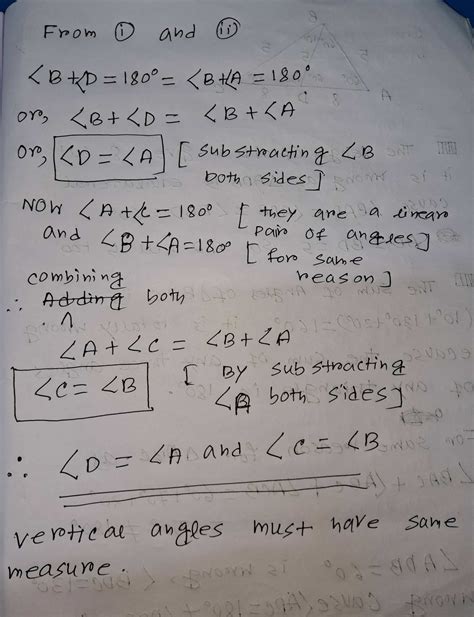 From (i) and (ii)
∠B+∠D = 180° = ∠B+∠A = 180°
or, ∠B + ∠D = ∠B + ∠A
Or, ∠D = ∠A [ substracting ∠B
both sides ]
NOW ∠A + ∠C = 180° [ they are a linear
pair of angles ]
and ∠B + ∠A = 180° [ for same
reason ]
combining
∴ Adding both
∠A + ∠C = ∠B + ∠A
∠C = ∠B [ BY substracting
∠A both sides ]
∴ ∠D = ∠A and ∠C = ∠B
vertical angles must have same
measure.